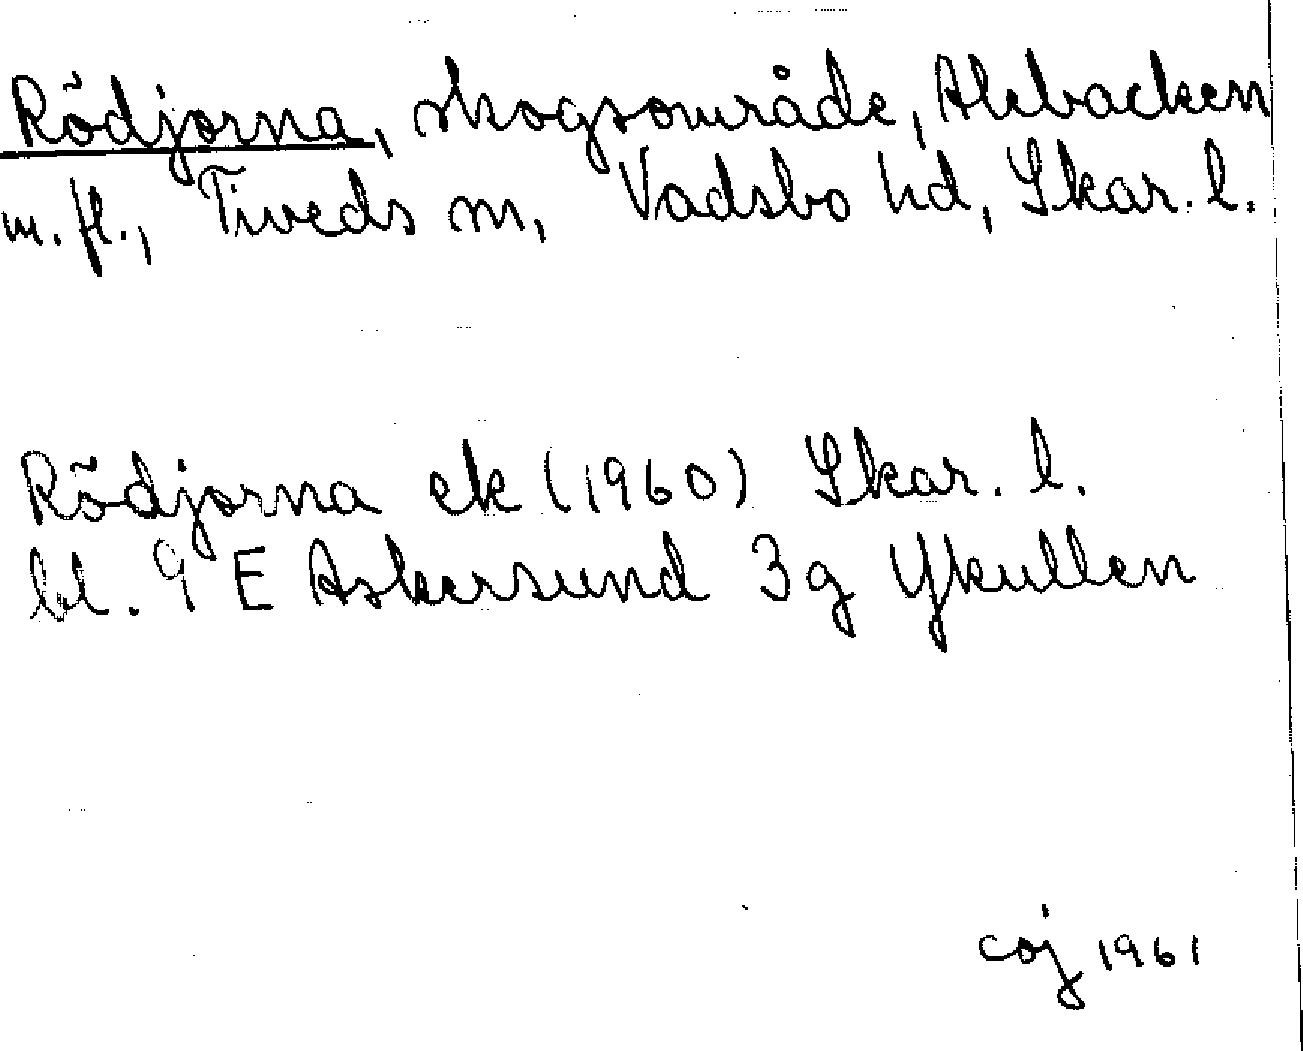 Rödjorna, skogsområde, Alebacken
m. fl., Tiveds sn, Vadsbo hd, Skar. l.
Rödjorna ek (1960) Skar. l.
bl. 9 E Askersund 3g Ykullen
coj 1961